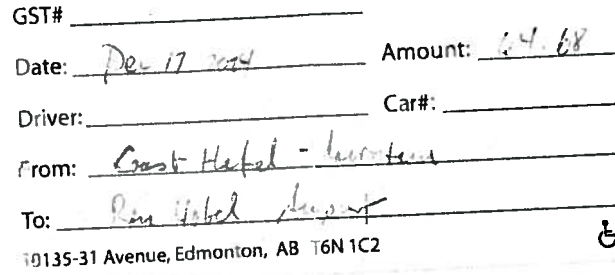 GST#
Date: Dec 17 2014 Amount: 64.68
Driver: Car#:
From: Coast Hotel -
To: Hotel, Airport
10135-31 Avenue, Edmonton, AB T6N 1C2